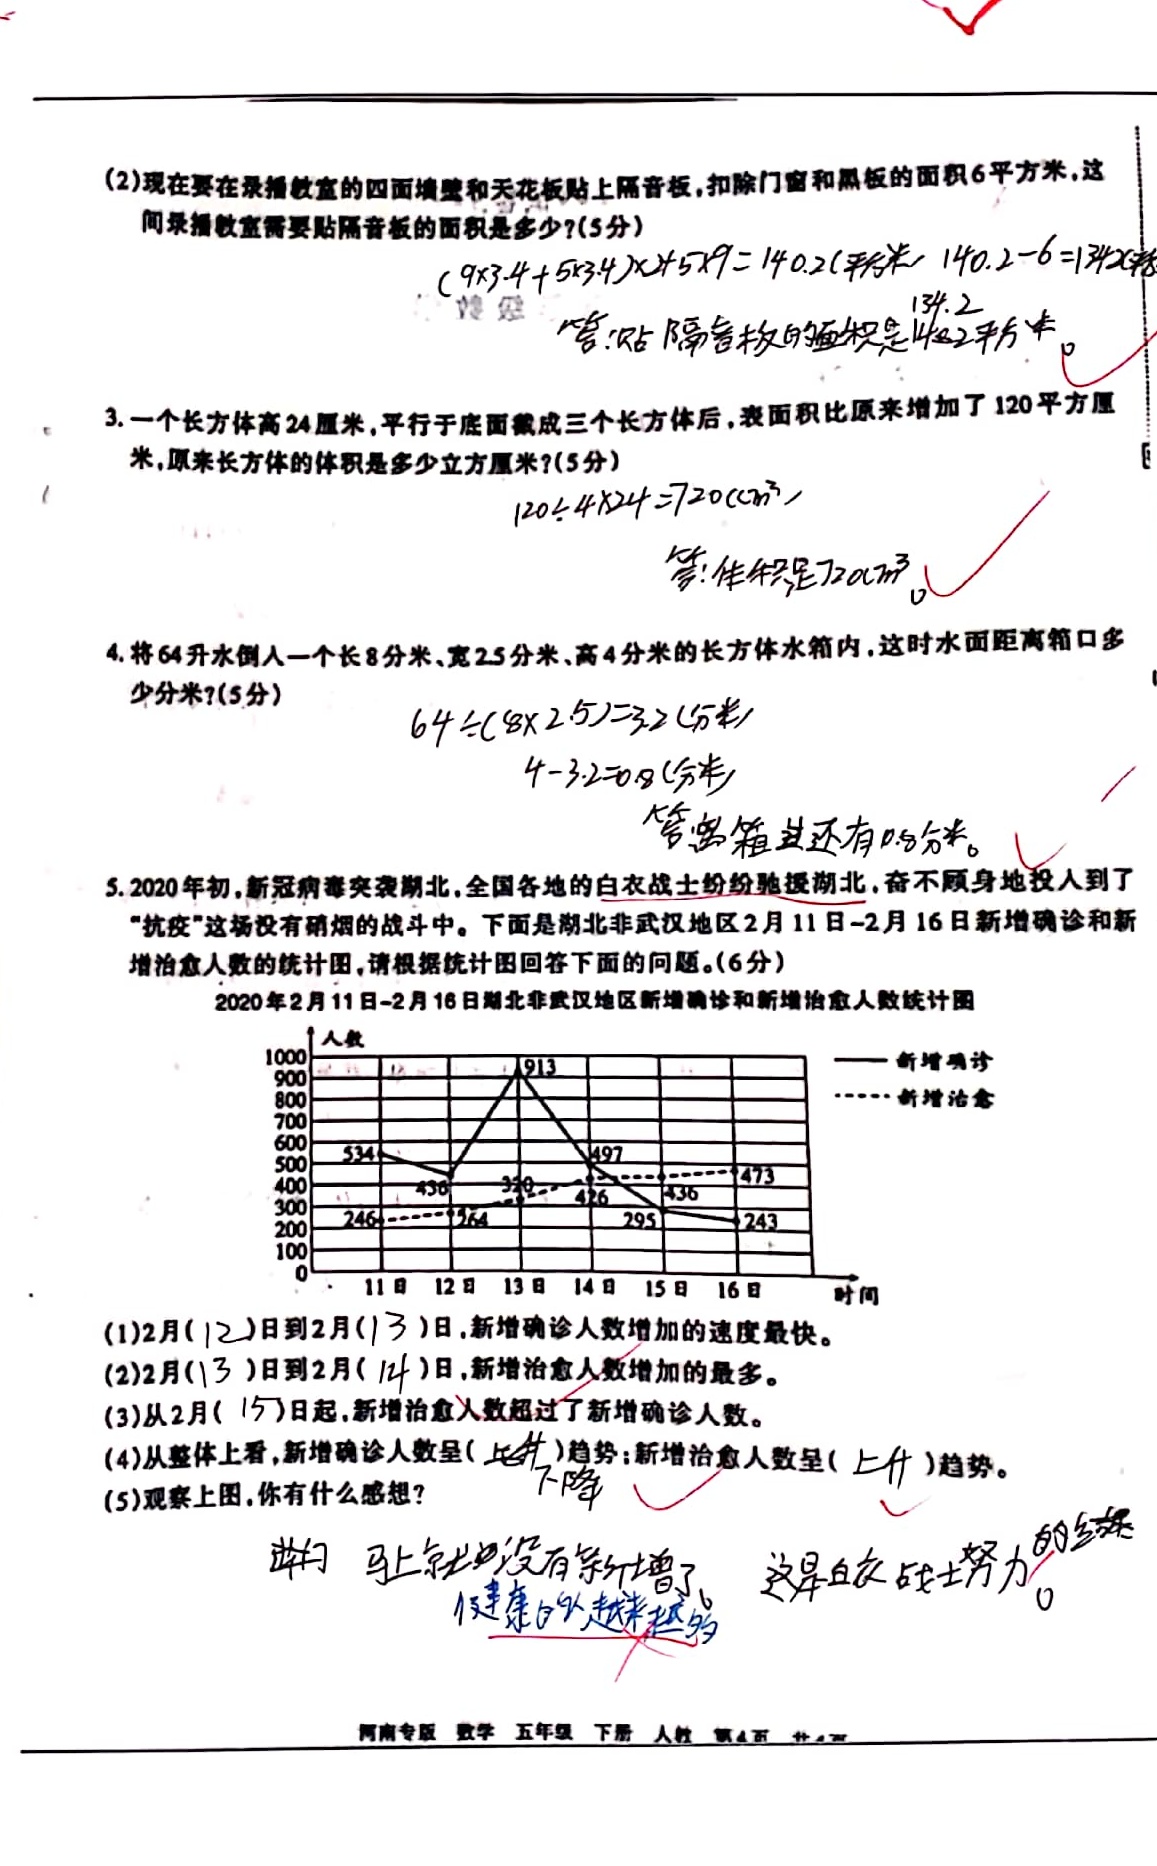 (2)现在要在录播教室的四面墙壁和天花板贴上隔音板,扣除门窗和黑板的面积6平方米,这
间录播教室需要贴隔音板的面积是多少?(5分)
(9×3.4+5×3.4)×2+5×9=140.2(平方米) 140.2-6=134.2(平
134.2
答:贴隔音板的面积是 平方米。
3.一个长方体高24厘米,平行于底面截成三个长方体后,表面积比原来增加了120平方厘
米,原来长方体的体积是多少立方厘米?(5分)
120÷4×24=720(cm³)
答:体积是720cm³。
4.将64升水倒人一个长8分米、宽2.5分米、高4分米的长方体水箱内,这时水面距离箱口多
少分米?(5分)
64÷(8×2.5)=3.2(分米)
4-3.2=0.8(分米)
答:离箱 还有0.8分米。
5.2020年初,新冠病毒突袭湖北,全国各地的白衣战士纷纷驰援湖北,奋不顾身地投人到了
“抗疫”这场没有硝烟的战斗中。下面是湖北非武汉地区2月11日-2月16日新增确诊和新
增治愈人数的统计图,请根据统计图回答下面的问题。(6分)
2020年2月11日-2月16日湖北非武汉地区新增确诊和新增治愈人数统计图
人数
新增确诊
新增治愈
1000
900
800
700
600
500
400
300
200
100
0
913
534
497
473
436
426
246
264
295
243
11日 12日 13日 14日 15日 16日 时间
(1)2月(12)日到2月(13)日,新增确诊人数增加的速度最快。
(2)2月(13)日到2月(14)日,新增治愈人数增加的最多。
(3)从2月(15)日起,新增治愈人数超过了新增确诊人数。
(4)从整体上看,新增确诊人数呈(上升)趋势;新增治愈人数呈(上升)趋势。
下降
(5)观察上图,你有什么感想?
马上就 没有新增了。 这是白衣战士努力的结果。
健康的人越来越多
河南专版 数学 五年级 下册 人教 第4页